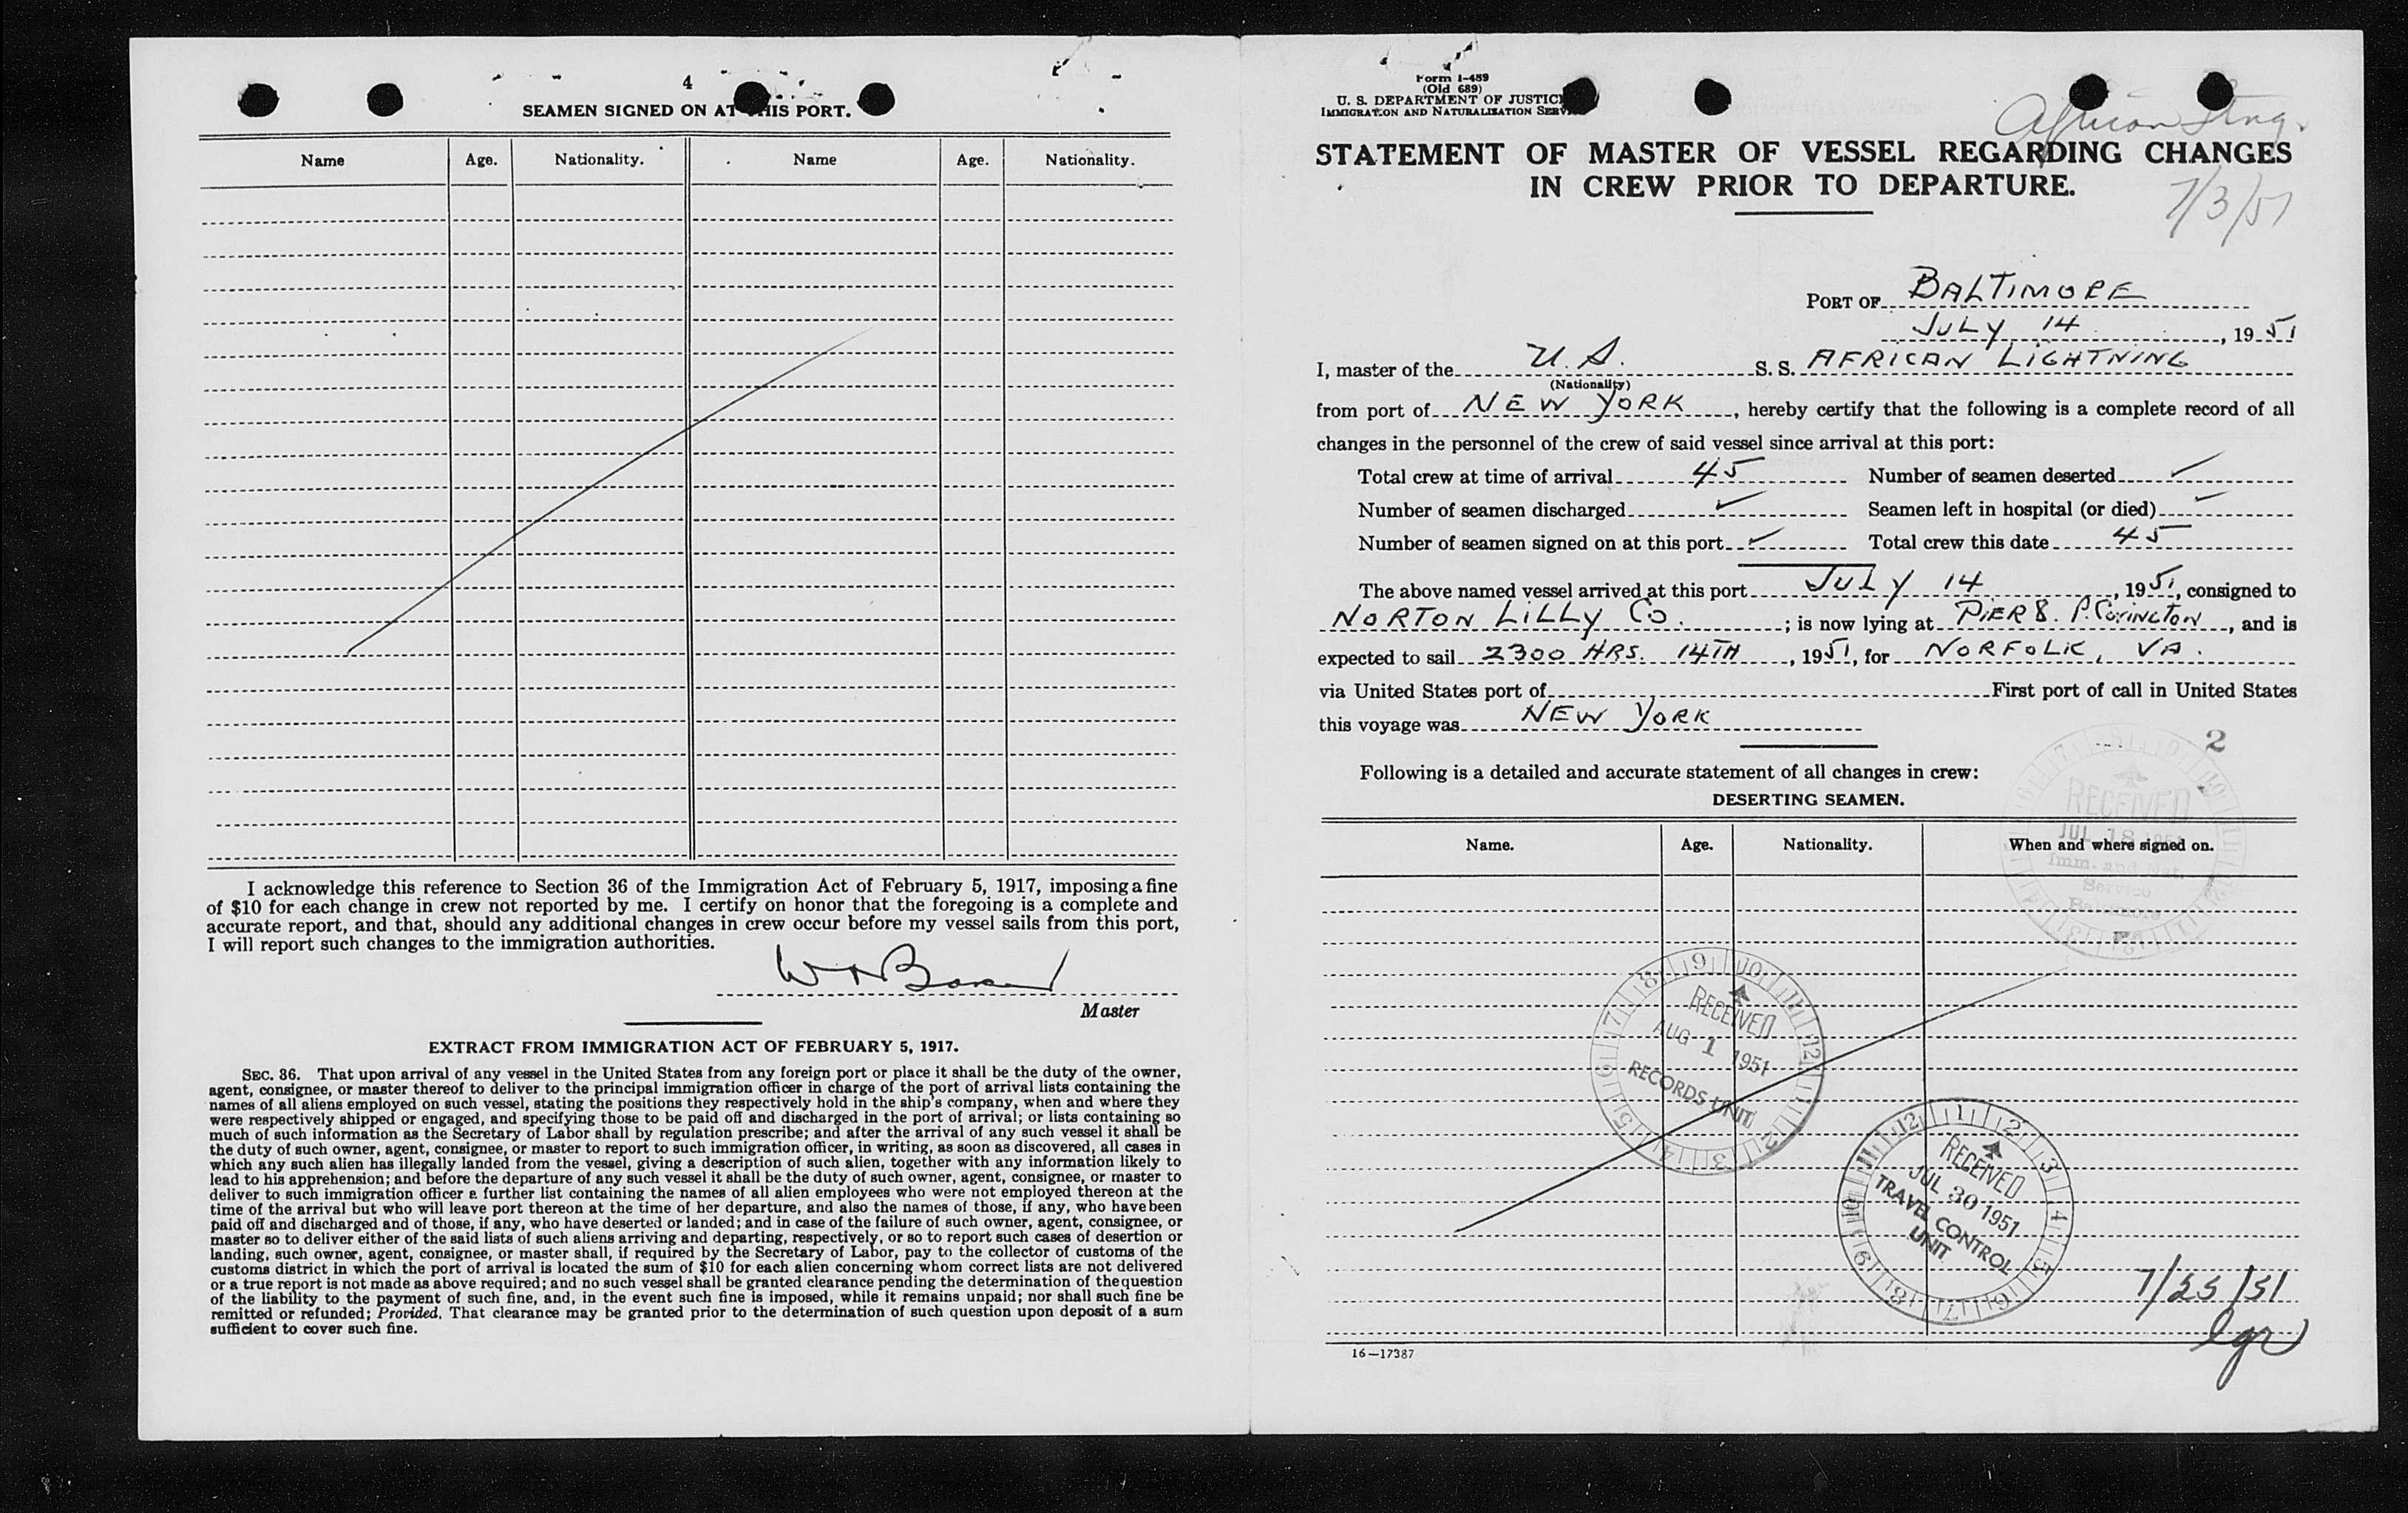 4
SEAMEN SIGNED ON AT THIS PORT.
Name Age. Nationality. Name Age. Nationality.
I acknowledge this reference to Section 36 of the Immigration Act of February 5, 1917, imposing a fine
of $10 for each change in crew not reported by me. I certify on honor that the foregoing is a complete and
accurate report, and that, should any additional changes in crew occur before my vessel sails from this port,
I will report such changes to the immigration authorities.
Master
EXTRACT FROM IMMIGRATION ACT OF FEBRUARY 5, 1917.
SEC. 36. That upon arrival of any vessel in the United States from any foreign port or place it shall be the duty of the owner,
agent, consignee, or master thereof to deliver to the principal immigration officer in charge of the port of arrival lists containing the
names of all aliens employed on such vessel, stating the positions they respectively hold in the ship's company, when and where they
were respectively shipped or engaged, and specifying those to be paid off and discharged in the port of arrival; or lists containing so
much of such information as the Secretary of Labor shall by regulation prescribe; and after the arrival of any such vessel it shall be
the duty of such owner, agent, consignee, or master to report to such immigration officer, in writing, as soon as discovered, all cases in
which any such alien has illegally landed from the vessel, giving a description of such alien, together with any information likely to
lead to his apprehension; and before the departure of any such vessel it shall be the duty of such owner, agent, consignee, or master to
deliver to such immigration officer a further list containing the names of all alien employees who were not employed thereon at the
time of the arrival but who will leave port thereon at the time of her departure, and also the names of those, if any, who have been
paid off and discharged and of those, if any, who have deserted or landed; and in case of the failure of such owner, agent, consignee, or
master so to deliver either of the said lists of such aliens arriving and departing, respectively, or so to report such cases of desertion or
landing, such owner, agent, consignee, or master shall, if required by the Secretary of Labor, pay to the collector of customs of the
customs district in which the port of arrival is located the sum of $10 for each alien concerning whom correct lists are not delivered
or a true report is not made as above required; and no such vessel shall be granted clearance pending the determination of the question
of the liability to the payment of such fine, and, in the event such fine is imposed, while it remains unpaid; nor shall such fine be
remitted or refunded; Provided, That clearance may be granted prior to the determination of such question upon deposit of a sum
sufficient to cover such fine.
Form I-489
(Old 689)
U. S. DEPARTMENT OF JUSTICE
IMMIGRATION AND NATURALIZATION SERVICE
African
STATEMENT OF MASTER OF VESSEL REGARDING CHANGES
IN CREW PRIOR TO DEPARTURE.
7/3/51
PORT OF BALTIMORE
JULY 14, 1951
I, master of the U.S. S. S. AFRICAN LIGHTNING
(Nationality)
from port of NEW YORK, hereby certify that the following is a complete record of all
changes in the personnel of the crew of said vessel since arrival at this port:
Total crew at time of arrival 45 Number of seamen deserted ✓
Number of seamen discharged ✓ Seamen left in hospital (or died) ✓
Number of seamen signed on at this port ✓ Total crew this date 45
The above named vessel arrived at this port JULY 14, 1951, consigned to
NORTON LILLY CO.; is now lying at PIER 8. P. COVINGTON, and is
expected to sail 2300 HRS. 14TH, 1951, for NORFOLK, VA.
via United States port of First port of call in United States
this voyage was NEW YORK
2
Following is a detailed and accurate statement of all changes in crew:
DESERTING SEAMEN.
Name. Age. Nationality. When and where signed on.
RECEIVED
JUL 18 1951
Imm. and Nat.
Service
Baltimore
RECEIVED
AUG 1 1951
RECORDS UNIT
RECEIVED
JUL 30 1951
TRAVEL CONTROL
UNIT
7/25/51
16—17387